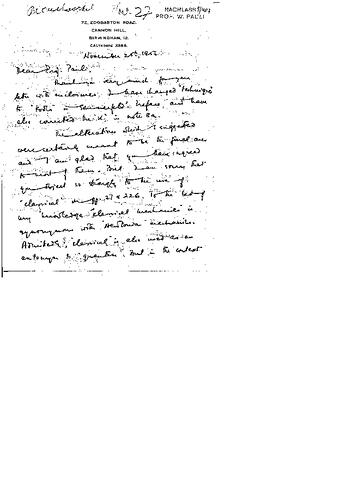 22
NACHLASS
PROF. W. PAULI
72, EDGBASTON ROAD,
CANNON HILL,
BIRMINGHAM, 12.
November 25th, 195
Dear Prof. Pauli,
Thank you very much for your
letter with enclosures. I have changed "techniques"
to "tools" in preface, and have
also corrected in note
The alterations which I suggested
were certainly meant to be the final ones
and I am glad that you have agreed
to most of them. But I am sorry that
you object so strongly to the use of
"classical" on pp. 27 & 226. To the best of
my knowledge "classical mechanics" is
synonymous with Newtonian mechanics.
Admittedly, "classical" is also used as an
antonym to "quantum". But in the context